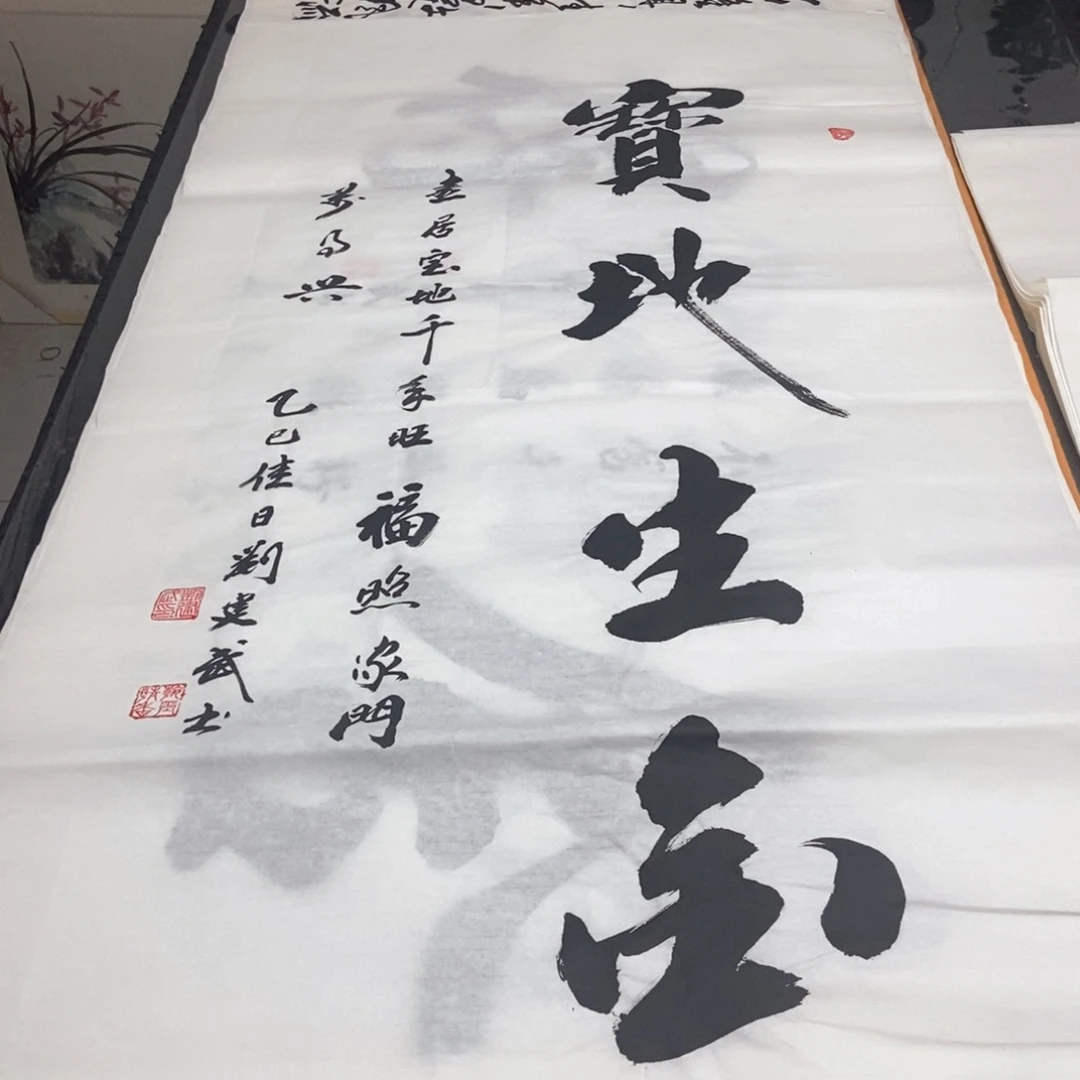 寶地生金
喜居宝地千年旺 福照家門
萬事兴
乙巳佳日劉建武书